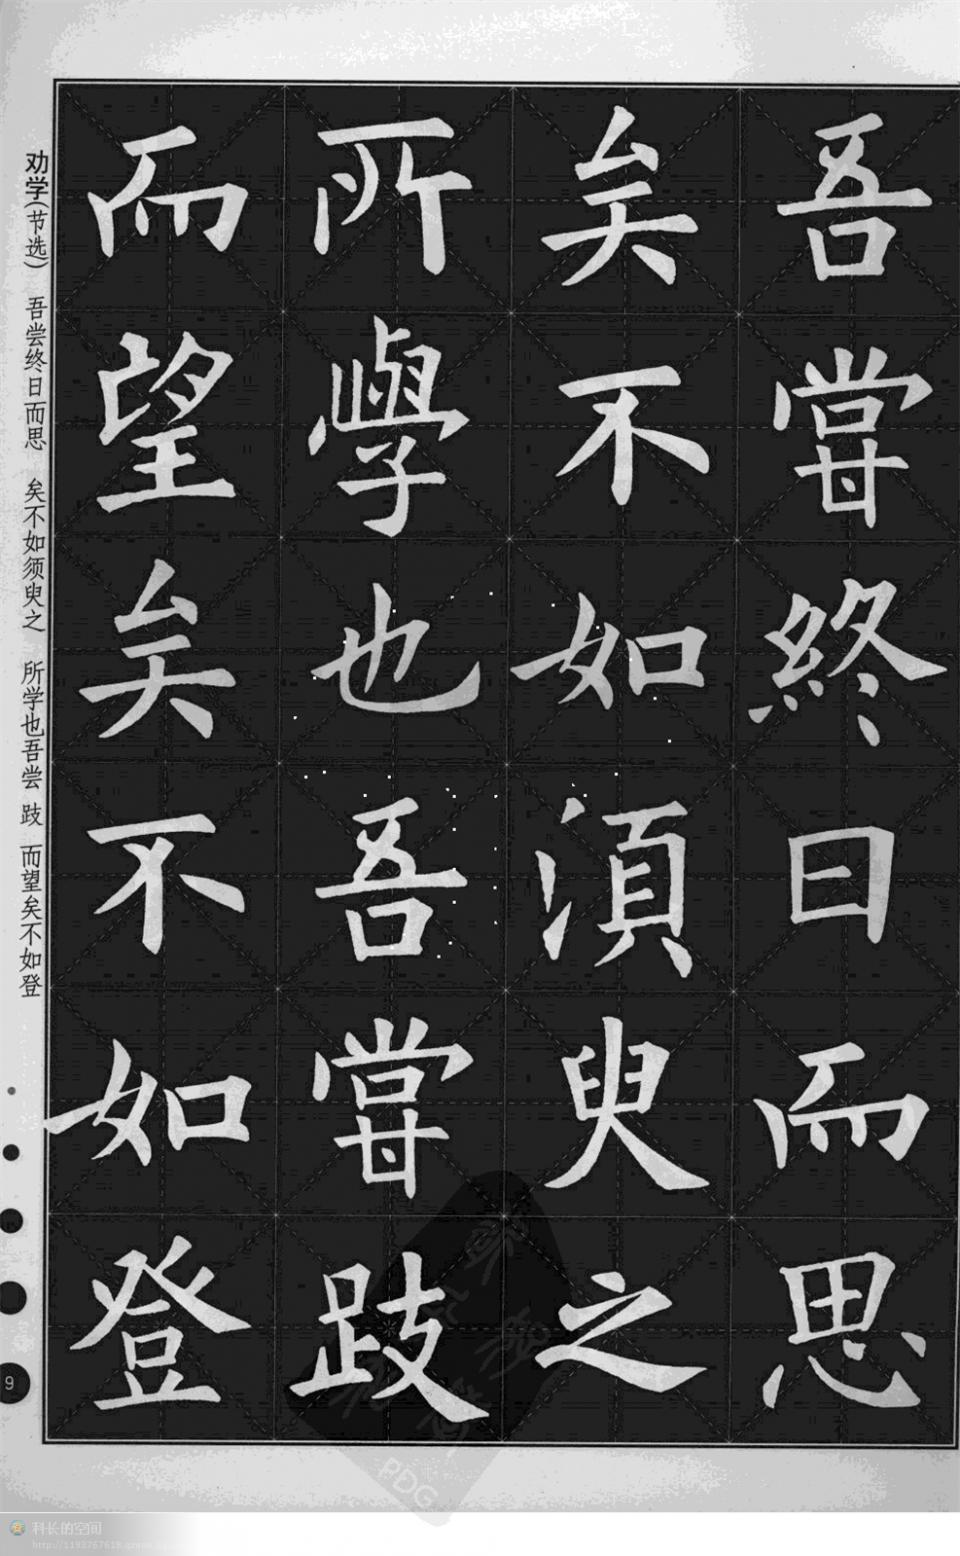 吾嘗終日而思
矣不如湏臾之
所學也吾嘗跂
而望矣不如登
劝学(节选) 吾尝终日而思 矣不如须臾之 所学也吾尝 跂 而望矣不如登
9
PDG
科长的空间